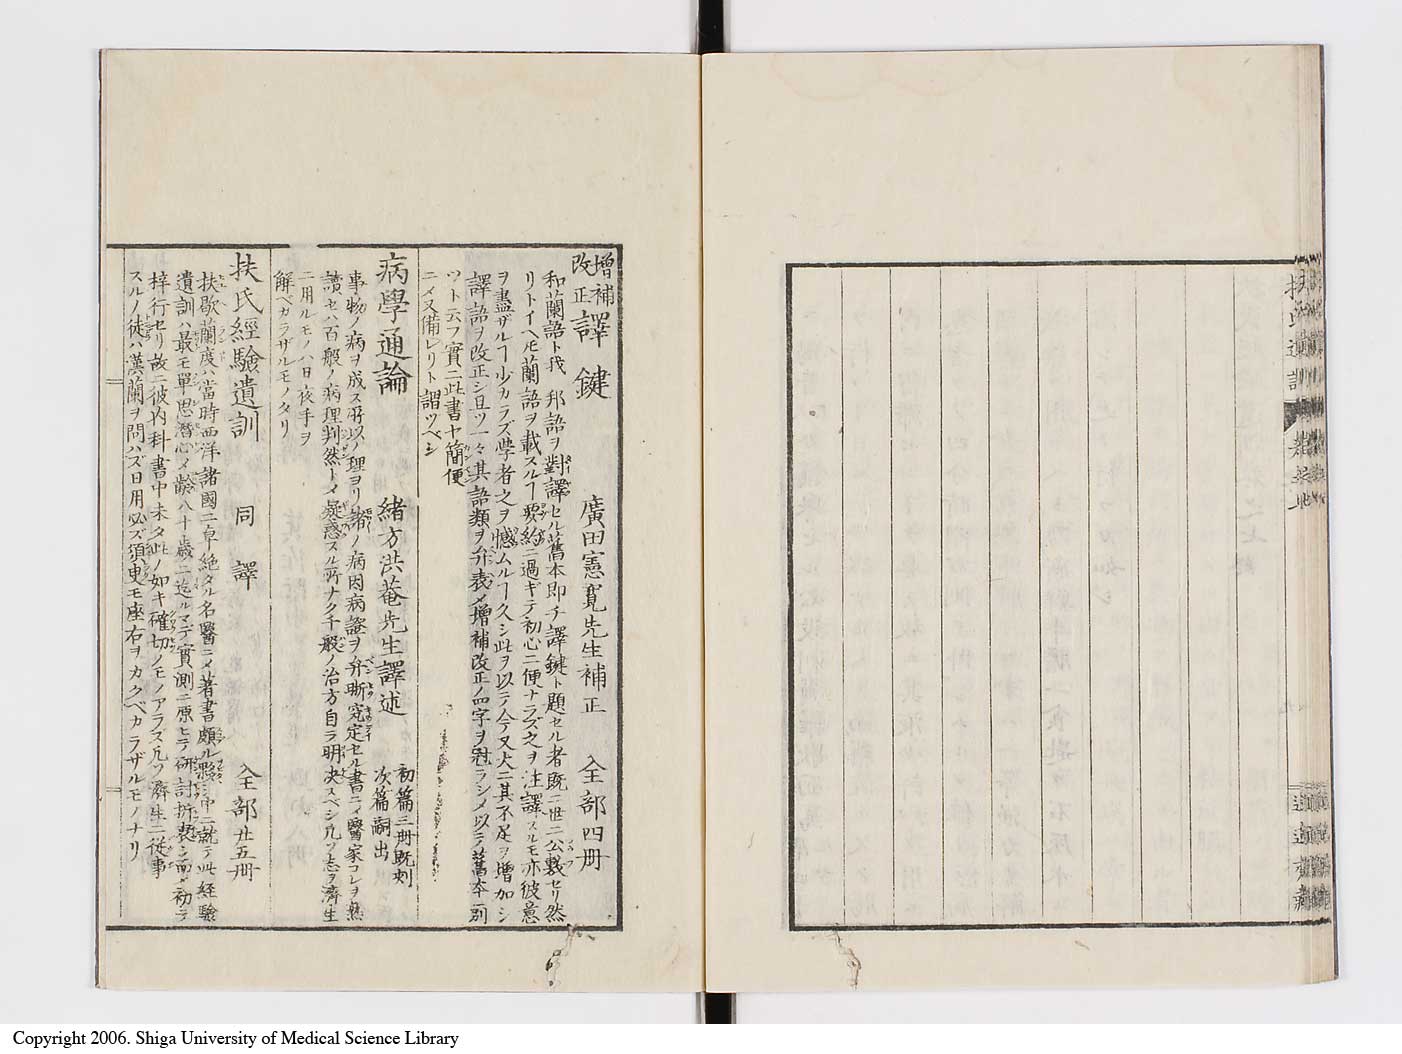 扶氏遺訓
適適齋藏
増補
改正
譯鍵
廣田憲寛先生補正
全部四册
和蘭語ト我 邦語ヲ對譯セル舊本即チ譯鍵ト題セル者既ニ世ニ公裁セリ然
リトイヘ𪜈蘭語ヲ載スルヿ要約ニ過ギテ初心ニ便ナラズ之ヲ注譯スルモ亦彼意
ヲ盡ザルヿ少カラズ學者之ヲ憾ムルヿ久シ此ヲ以テ今又大ニ其不足ヲ増加シ
譯語ヲ改正シ且ツ一々其語類ヲ弁表〆増補改正ノ四字ヲ冠ラシメ以テ舊本ニ別
ツト云フ實ニ此書ヤ簡便
ニ〆又備レリト謂ツベシ
病學通論
緒方洪菴先生譯述
初篇三册既刻
次篇嗣出
事物ノ病ヲ成ス所以ノ理ヨリ諸ノ病因病證ヲ弁晰究定セル書ニ〆醫家コレヲ熟
讀セハ百般ノ病理判然ト〆疑惑スル所ナク千般ノ治方自ラ明決スベシ凡ソ志ヲ濟生
ニ用ルモノハ日夜手ヲ
解ベカラザルモノタリ
扶氏經驗遺訓
同譯
全部廿五册
扶歇蘭度ハ當時西洋諸國ニ卓絶タル名醫ニ〆著書頗ル夥シ中ニ就テ此經驗
遺訓ハ最モ單思潛心〆齢八十歳ニ迄ルマデ實測ニ原ヒテ研討折衷シ而〆初テ
梓行セリ故ニ彼内科書中未タ此ノ如キ確切ノモノアラス凡ソ濟生ニ從事
スルノ徒ハ漢蘭ヲ問ハズ日用必ズ須臾モ座右ヲカクベカラザルモノナリ
Copyright 2006. Shiga University of Medical Science Library